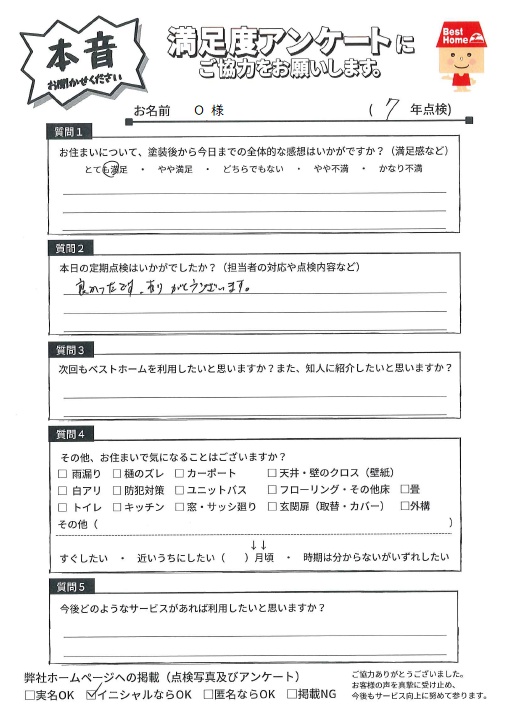 本音
お聞かせください
満足度アンケートに
ご協力をお願いします。
Best Home
お名前 O 様 ( 7 年点検)
質問1
お住まいについて、塗装後から今日までの全体的な感想はいかがですか？（満足感など）
とても満足 ・ やや満足 ・ どちらでもない ・ やや不満 ・ かなり不満
質問2
本日の定期点検はいかがでしたか？（担当者の対応や点検内容など）
良かったです。ありがとうございます。
質問3
次回もベストホームを利用したいと思いますか？また、知人に紹介したいと思いますか？
質問4
その他、お住まいで気になることはございますか？
□ 雨漏り □ 樋のズレ □ カーポート □ 天井・壁のクロス（壁紙）
□ 白アリ □ 防犯対策 □ ユニットバス □ フローリング・その他床 □畳
□ トイレ □ キッチン □ 窓・サッシ廻り □ 玄関扉（取替・カバー） □外構
その他（ ）
↓↓
すぐしたい ・ 近いうちにしたい（ ）月頃 ・ 時期は分からないがいずれしたい
質問5
今後どのようなサービスがあれば利用したいと思いますか？
弊社ホームページへの掲載（点検写真及びアンケート）
□実名OK ☑イニシャルならOK □匿名ならOK □掲載NG
ご協力ありがとうございました。
お客様の声を真摯に受け止め、
今後もサービス向上に努めて参ります。